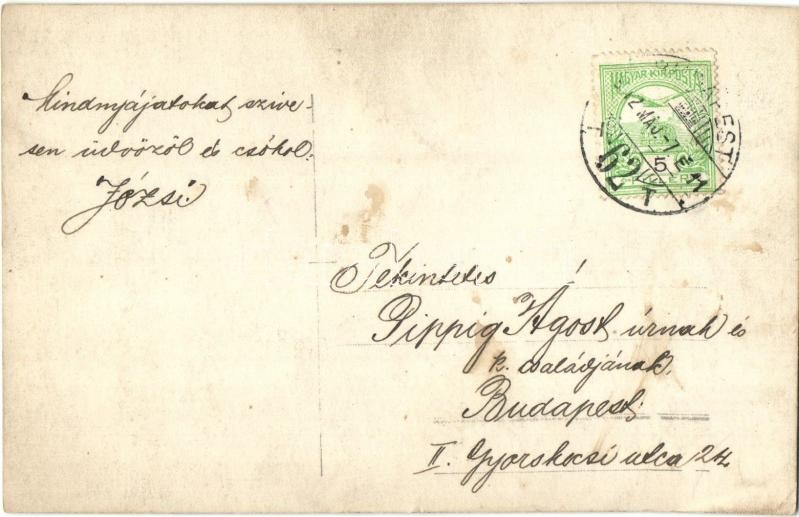 Mindnyájatokat szive-
sen üdvözöl és csókol.
Józsi.
MAGYAR KIR. POSTA
BUDAPEST
MÁJ. -1
5
62
Tekintetes
Pippig Ágost úrnak és
k. családjának.
Budapest.
II. Gyorskocsi utca 24